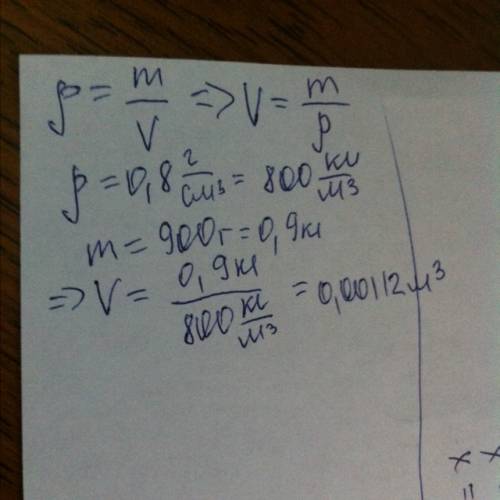 ρ = m/V => V = m/ρ
ρ = 0,8 г/см³ = 800 кг/м³
m = 900г = 0,9кг
=> V = 0,9кг / 800 кг/м³ = 0,00112м³
x x